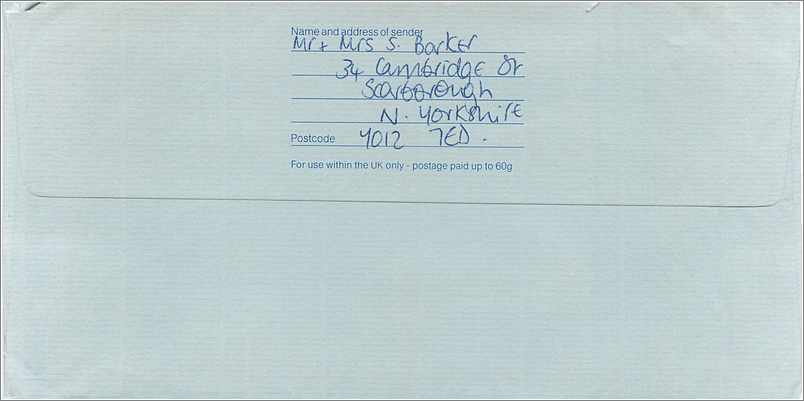 Name and address of sender
Mr + Mrs S. Barker
34 Cambridge St
Scarborough
N. Yorkshire
Postcode YO12 7ED.
For use within the UK only - postage paid up to 60g